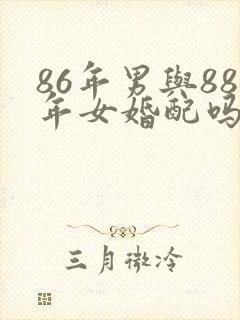 86年男與88
年女婚配吗
三月微冷